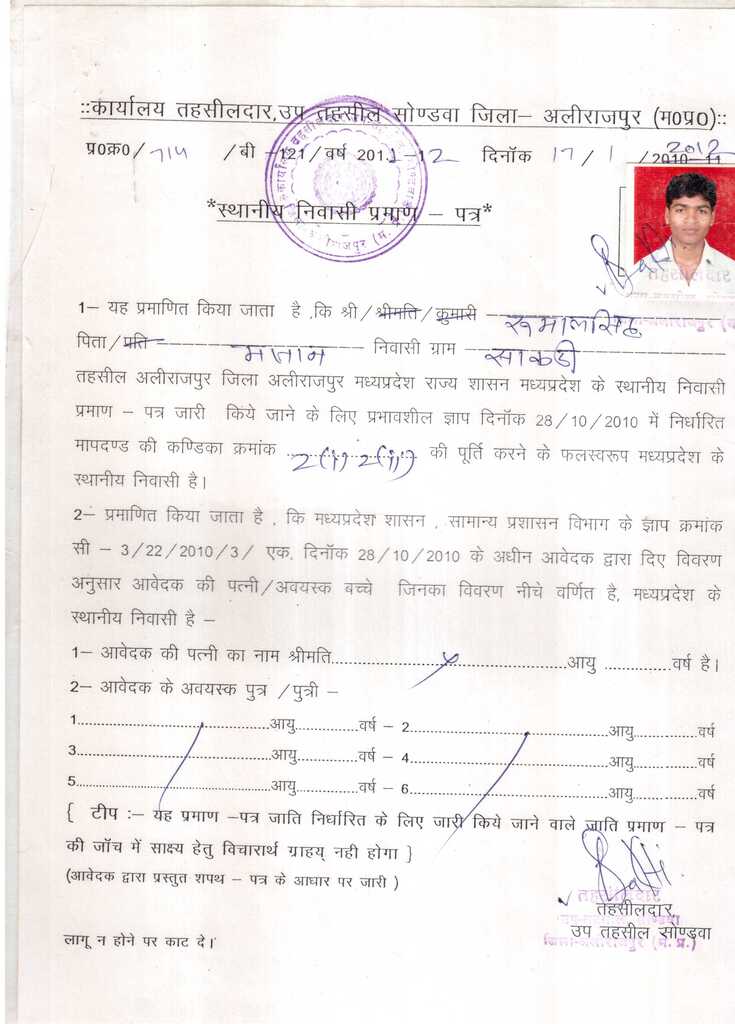 ::कार्यालय तहसीलदार,उप तहसील सोण्डवा जिला– अलीराजपुर (म0प्र0)::
प्र0क्र0/ 714 /बी –121/वर्ष 2011-12 दिनॉक 17/1/2010-11 2012
*स्थानीय निवासी प्रमाण – पत्र*
1– यह प्रमाणित किया जाता है ,कि श्री/श्रीमति/कुमारी रूमालसिंह
पिता/पति निवासी ग्राम साकडी
तहसील अलीराजपुर जिला अलीराजपुर मध्यप्रदेश राज्य शासन मध्यप्रदेश के स्थानीय निवासी
प्रमाण – पत्र जारी किये जाने के लिए प्रभावशील ज्ञाप दिनॉक 28/10/2010 में निर्धारित
मापदण्ड की कण्डिका क्रमांक 2(i) 2(ii) की पूर्ति करने के फलस्वरूप मध्यप्रदेश के
स्थानीय निवासी है।
2– प्रमाणित किया जाता है , कि मध्यप्रदेश शासन , सामान्य प्रशासन विभाग के ज्ञाप क्रमांक
सी – 3/22/2010/3/ एक, दिनॉक 28/10/2010 के अधीन आवेदक द्वारा दिए विवरण
अनुसार आवेदक की पत्नी/अवयस्क बच्चे जिनका विवरण नीचे वर्णित है, मध्यप्रदेश के
स्थानीय निवासी है –
1– आवेदक की पत्नी का नाम श्रीमति..............................आयु ............वर्ष है।
2– आवेदक के अवयस्क पुत्र /पुत्री –
1..............................आयु............वर्ष – 2..............................आयु............वर्ष
3..............................आयु............वर्ष – 4..............................आयु............वर्ष
5..............................आयु............वर्ष – 6..............................आयु............वर्ष
{ टीप :– यह प्रमाण –पत्र जाति निर्धारित के लिए जारी किये जाने वाले जाति प्रमाण – पत्र
की जॉच में साक्ष्य हेतु विचारार्थ ग्राहय् नही होगा }
(आवेदक द्वारा प्रस्तुत शपथ – पत्र के आधार पर जारी )
तहसीलदार,
उप तहसील सोण्डवा
लागू न होने पर काट दे।